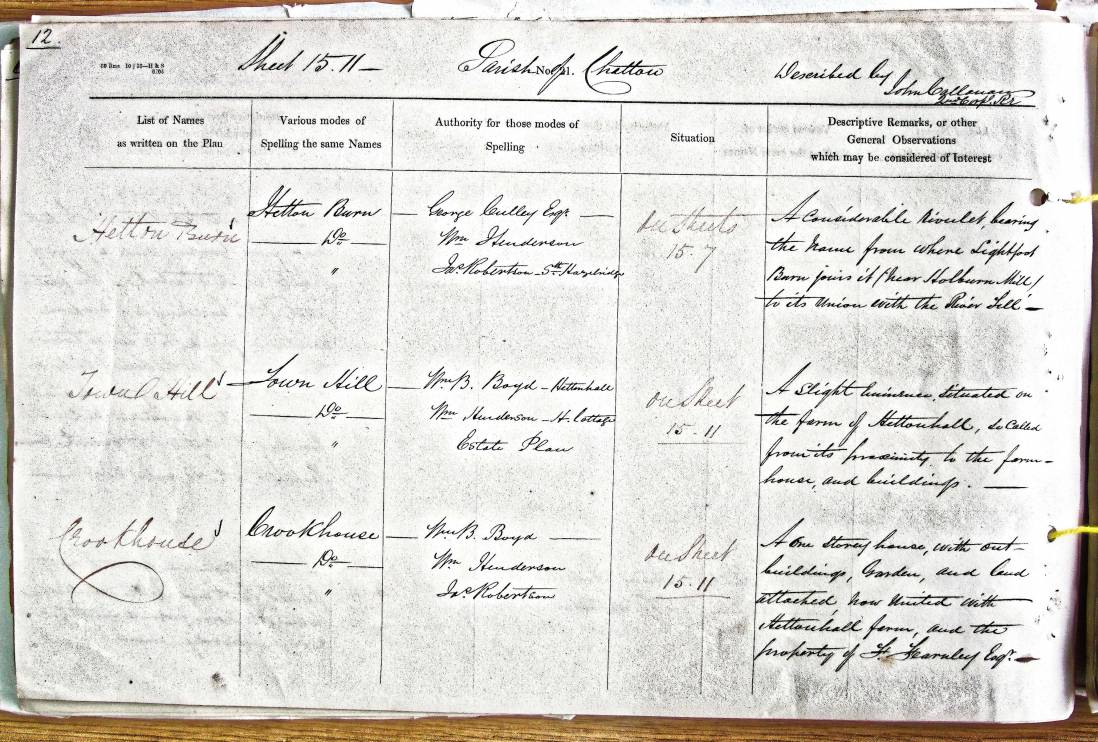 12.
Sheet 15.11 —
Parish No. of 1. Chatton
Described by
John Cullanan
2nd Corpl. R.E.
List of Names
as written on the Plan
Various modes of
Spelling the same Names
Authority for those modes of
Spelling
Situation
Descriptive Remarks, or other
General Observations
which may be considered of Interest
Hetton Burn
Hetton Burn
Do
"
George Culley Esqr.
Wm Henderson
Jas Robertson - Sth Hazelridge
on Sheets
15.7
A considerable rivulet, bearing
the name from where Lightfoot
Burn joins it (near Holburn Mill)
to its union with the River Till —
Town Hill
Town Hill
Do
"
Wm B. Boyd - Hettonhall
Wm Henderson - H. Cottage
Estate Plan
on Sheet
15.11
A slight eminence, situated on
the farm of Hettonhall, so called
from its proximity to the farm-
house, and buildings. —
Crookhouse
Crookhouse
Do
"
Wm B. Boyd
Wm Henderson
Jas Robertson
on Sheet
15.11
A one storey house, with out-
buildings, Garden, and land
attached, now united with
Hettonhall farm, and the
property of F. Fearnley Esqr. —